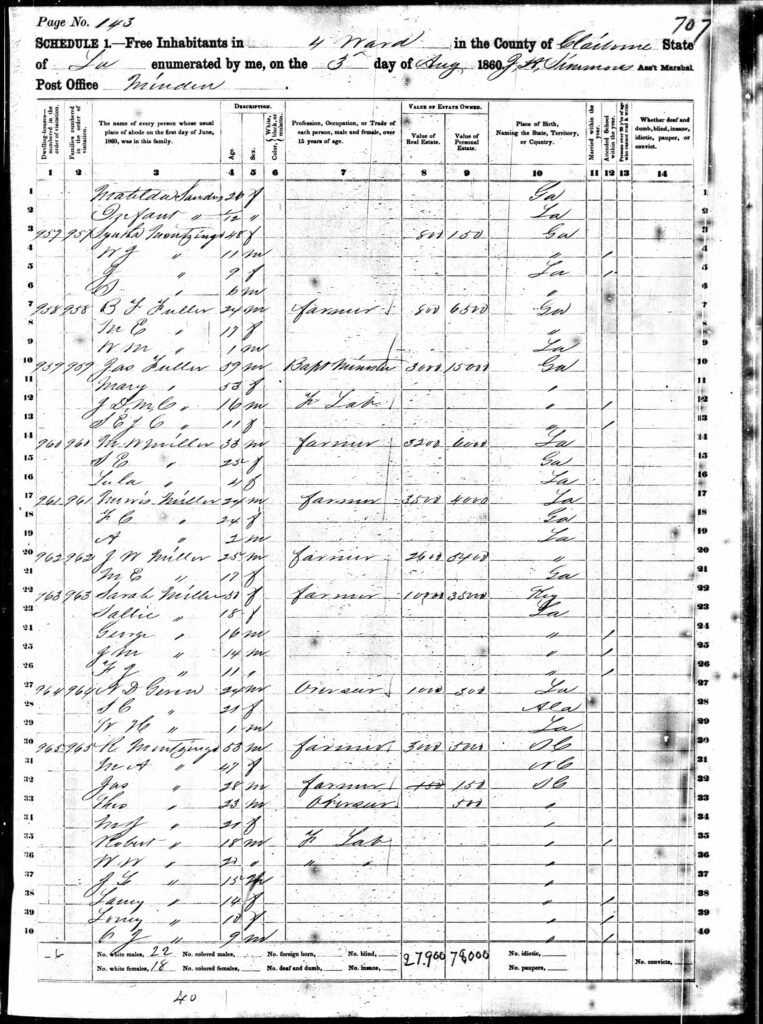 Page No. 143
707
SCHEDULE 1.—Free Inhabitants in 4 Ward in the County of Claiborne State
of La enumerated by me, on the 3 day of Aug 1860. J. Simmons Ass't Marshal.
Post Office Minden
Dwelling-houses—numbered in the order of visitation.
Families numbered in the order of visitation.
The name of every person whose usual place of abode on the first day of June, 1860, was in this family.
DESCRIPTION.
Age.
Sex.
Color, White, black, or mulatto.
Profession, Occupation, or Trade of each person, male and female, over 15 years of age.
VALUE OF ESTATE OWNED.
Value of Real Estate.
Value of Personal Estate.
Place of Birth, Naming the State, Territory, or Country.
Married within the year.
Attended School within the year.
Whether deaf and dumb, blind, insane, idiotic, pauper, or convict.
1 2 3 4 5 6 7 8 9 10 11 12 13 14
1 Matilda Sanders 26 f Ga 1
2 Infant " 1/12 " La 2
3 957 957 48 f 800 150 Ga 3
4 W J " 11 m " / 4
5 " 9 f La / 5
6 " 6 m " 6
7 958 958 B F Fuller 24 m farmer 800 6500 Ga 7
8 M E " 17 f " 8
9 W M " 1 m La 9
10 959 959 Jas Fuller 59 m Bapt Minister 3000 15000 Ga 10
11 Mary " 53 f " 11
12 J D M C " 16 m F Lab " / 12
13 S E J C " 11 f " / 13
14 960 960 M W Miller 33 m farmer 3200 6000 La 14
15 S E " 25 f Ga 15
16 Lula " 4 f La 16
17 961 961 Miller 24 m farmer 3500 4000 La 17
18 F C " 24 f Ga 18
19 A " 2 m La 19
20 962 962 J W Miller 25 m farmer 2600 5400 " 20
21 M E " 17 f Ga 21
22 163 963 Sarah Miller 50 f farmer 10000 35000 Key 22
23 Sallie " 18 f La 23
24 George " 16 m " / 24
25 J M " 14 m " / 25
26 F J " 11 " " / 26
27 964 964 D 24 m Overseer 1000 300 La 27
28 S C " 21 f Ala 28
29 W H " 1 m La 29
30 965 965 R Montzingo 53 m farmer 3000 5000 S C 30
31 M A " 47 f N C 31
32 Jas " 28 m farmer 150 150 S C 32
33 Theo " 23 m Overseer 500 " 33
34 M J " 21 f " 34
35 Robert " 18 m F Lab " / 35
36 W W " 21 " " " " 36
37 J G " 15 m " 37
38 " 14 f " / 38
39 " 10 f " / 39
40 C J " 9 m " / 40
No. white males, 22 No. colored males, No. foreign born, No. blind, 27,900 78000 No. idiotic, No. convicts,
No. white females, 18 No. colored females, No. deaf and dumb, No. insane, No. paupers,
40